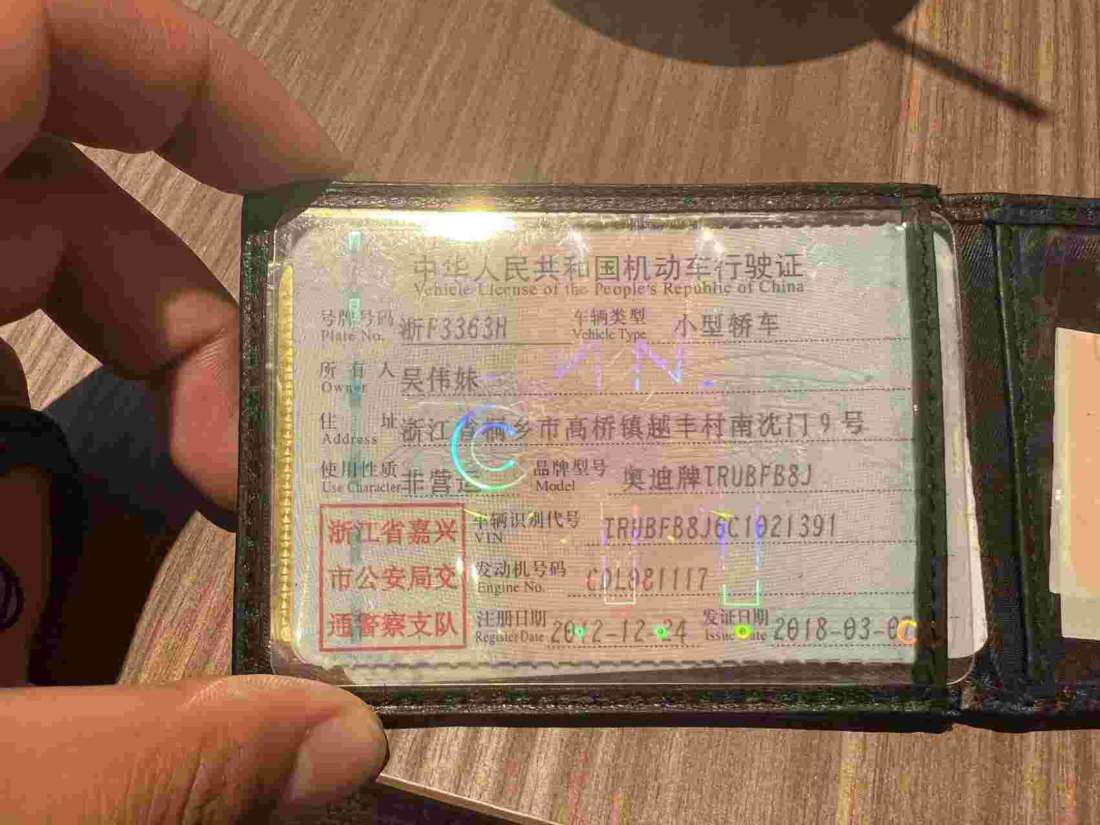 中华人民共和国机动车行驶证
Vehicle License of the People's Republic of China
号牌号码 浙F3363H 车辆类型 小型轿车
Plate No. Vehicle Type
所有人 吴伟妹
Owner
住址 浙江省桐乡市高桥镇越丰村南沈门9号
Address
使用性质 非营运 品牌型号 奥迪牌TRUBFB8J
Use Character Model
浙江省嘉兴
市公安局交
通警察支队
车辆识别代号 TRUBFB8J6C1021391
VIN
发动机号码 CDL081117
Engine No.
注册日期 2012-12-24 发证日期 2018-03-0
Register Date Issue Date